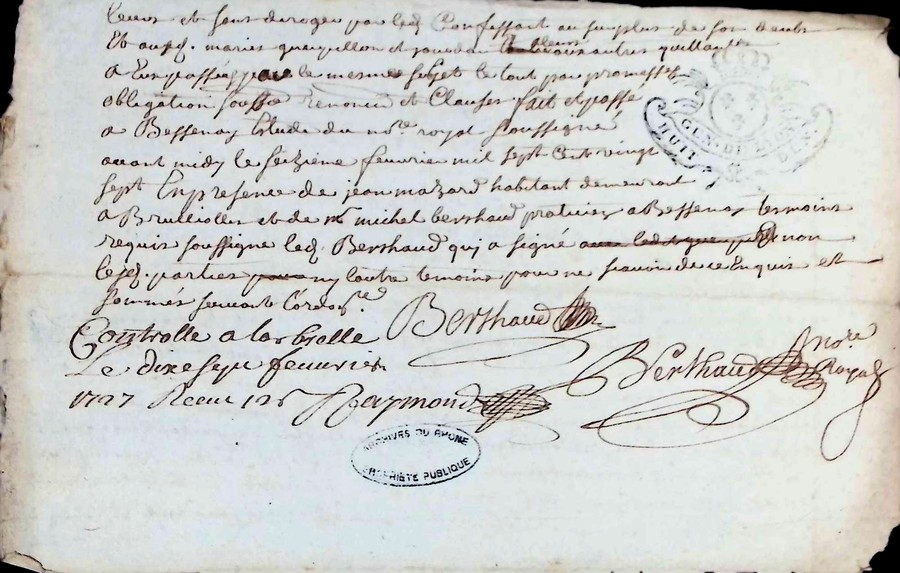 et sans deroger par led. Confessant au surplus de son
Et ausd. maries quequillon et
a Eux passé le mesme sujet le tout par promesses
obligation renonce et Clauses fait et passé
a Bessenay Estude du nore. royal soussigné
avant midy le seizième feuvrier mil sept Cent vingt
sept En presence de jean mazard habitant demeurant
a Brulliolles et de mre michel berthaud praticien a Bessenay temoins
requis soussigné led. Berthaud qui a signé non
lesd. parties ny lautre temoin pour ne scavoir de ce Enquis et
sommés suivant lordce.
Berthaud
Controllé a larbralle
Le dixsept feuvrier
1727 Receu 12s Raymond
Berthaud nore. Royal
HUIT DEN.
GEN. DE LION
ARCHIVES DU RHONE
PROPRIÉTÉ PUBLIQUE